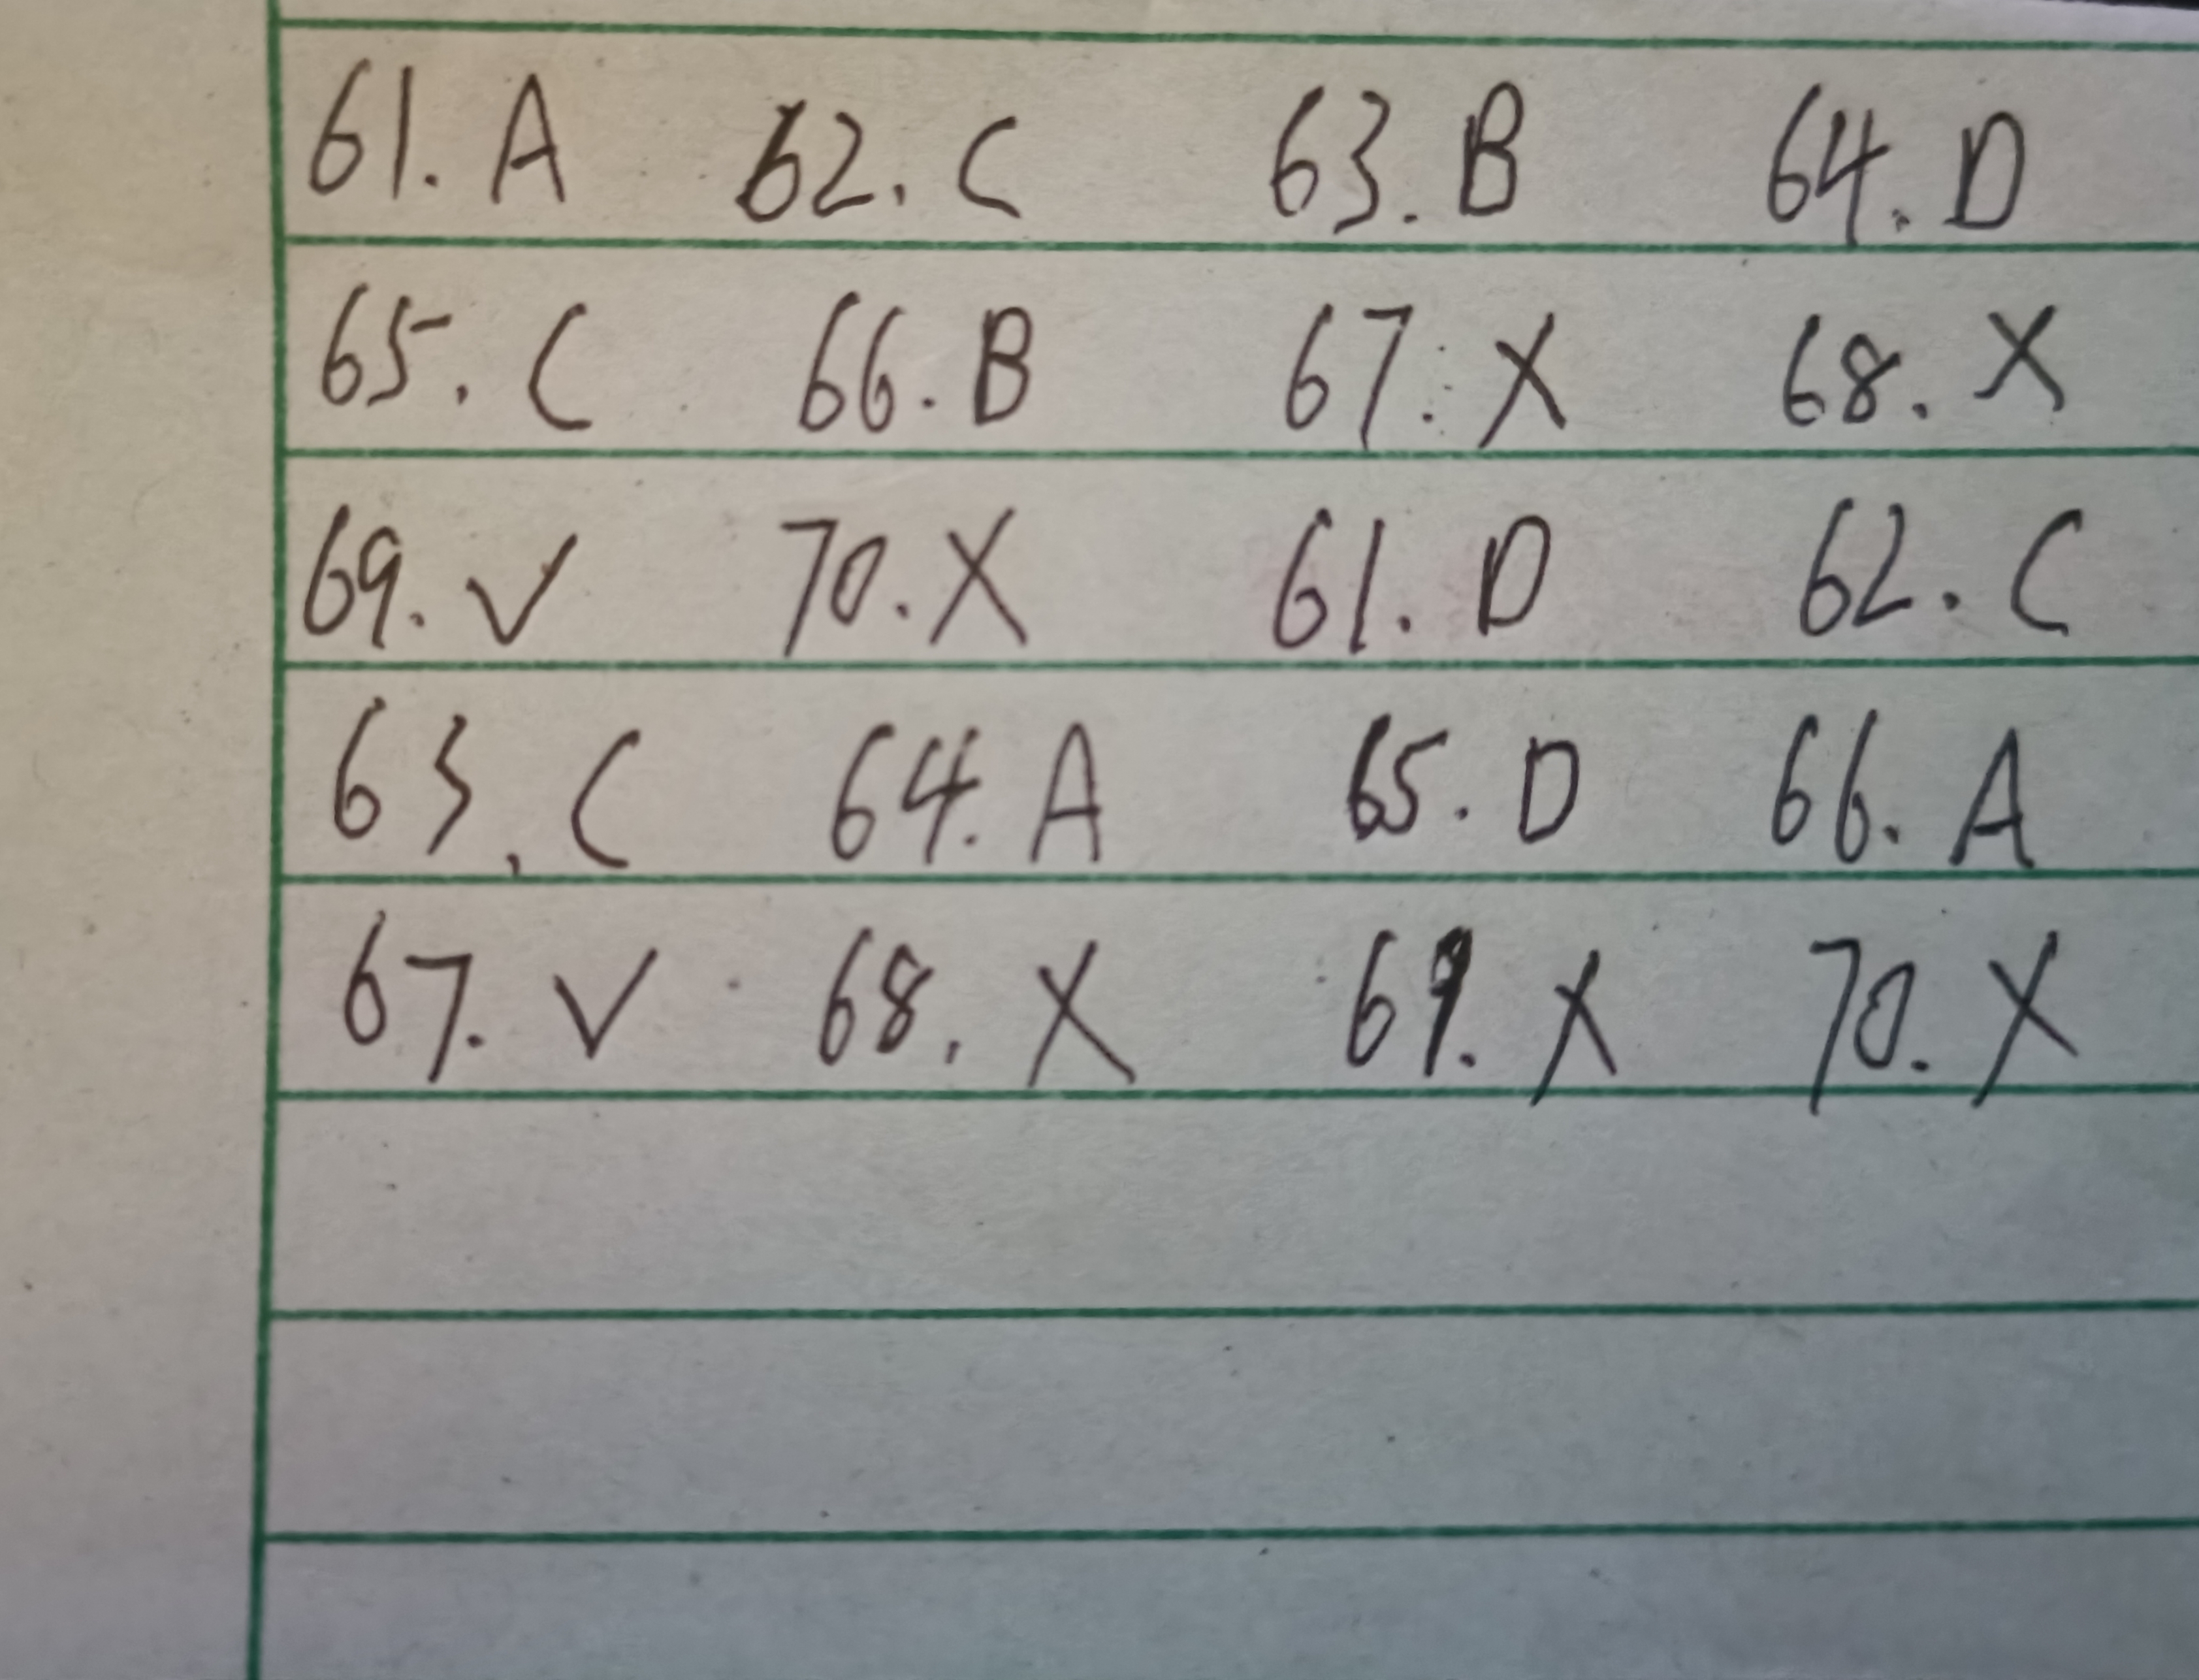 61. A 62. C 63. B 64. D
65. C 66. B 67. X 68. X
69. ✓ 70. X 61. D 62. C
63. C 64. A 65. D 66. A
67. ✓ 68. X 69. X 70. X